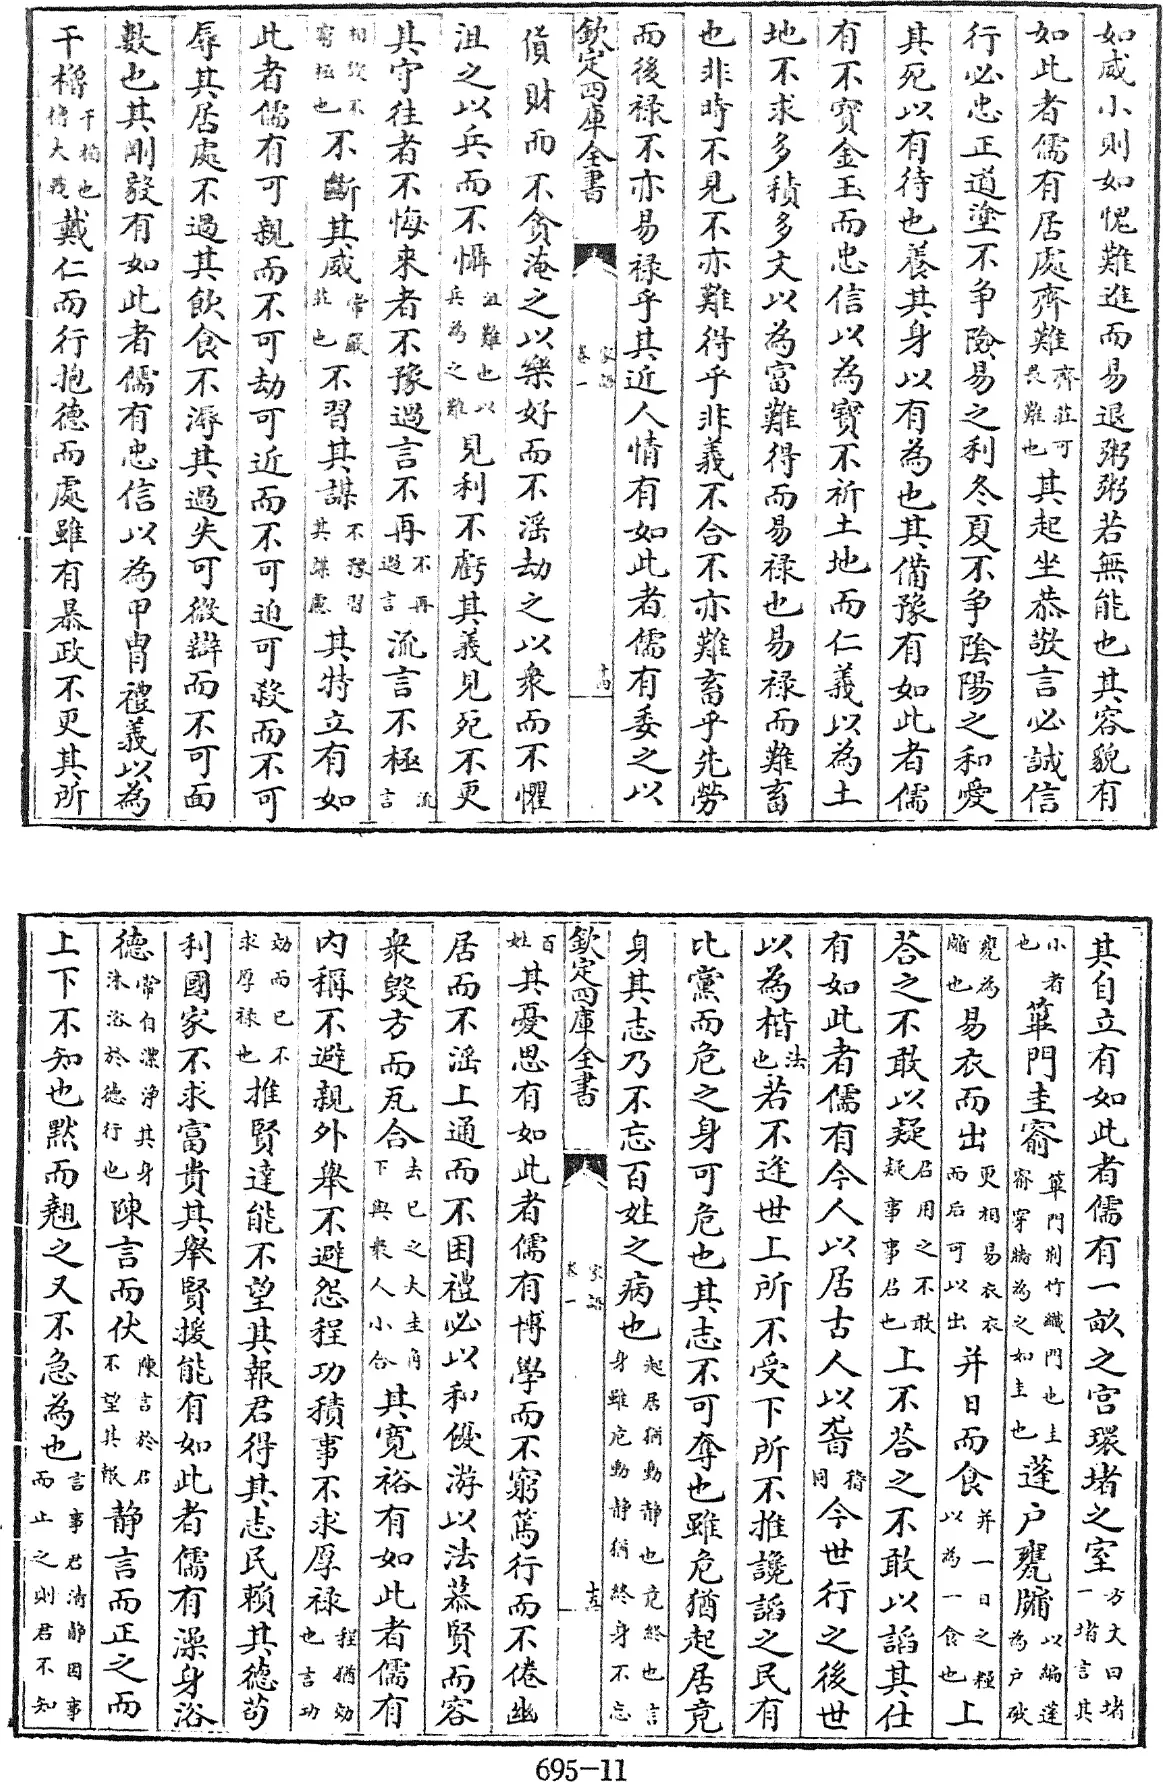 如威小則如愧難進而易退粥粥若無能也其容貌有
如此者儒有居處齊難齊莊可畏難也其起坐恭敬言必誠信
行必忠正道塗不争險易之利冬夏不争陰陽之和愛
其死以有待也養其身以有為也其備豫有如此者儒
有不寳金玉而忠信以為寳不祈土地而仁義以為土
地不求多積多文以為富難得而易禄也易禄而難畜
也非時不見不亦難得乎非義不合不亦難畜乎先勞
而後禄不亦易禄乎其近人情有如此者儒有委之以
欽定四庫全書 家語 卷一 十四
貨財而不貪淹之以樂好而不淫劫之以衆而不懼
沮之以兵而不懾沮難也以兵為之難見利不虧其義見死不更
其守往者不悔来者不豫過言不再不再過言流言不極流言
相毁不窮極也不斷其威常嚴莊也不習其謀不豫習其謀慮其特立有如
此者儒有可親而不可劫可近而不可迫可殺而不可
辱其居處不過其飲食不溽其過失可微辯而不可面
數也其剛毅有如此者儒有忠信以為甲胄禮義以為
干櫓干楯也櫓大戟戴仁而行抱德而處雖有暴政不更其所
其自立有如此者儒有一畝之宫環堵之室方丈曰堵一堵言其
小者也篳門圭窬篳門荆竹織門也圭窬穿牆為之如圭也蓬户甕牖以編蓬為户破
甕為牖也易衣而出更相易衣衣而后可以出并日而食并一日之糧以為一食也上
荅之不敢以疑君用之不敢疑事事君也上不荅之不敢以諂其仕
有如此者儒有今人以居古人以䅲稽同今世行之後世
以為楷法也若不逢世上所不受下所不推讒諂之民有
比黨而危之身可危也其志不可奪也雖危猶起居竟
身其志乃不忘百姓之病也起居猶動静也竟終也言身雖危動静猶終身不忘
欽定四庫全書 家語 卷一 十五
百姓其憂思有如此者儒有博學而不窮篤行而不倦幽
居而不淫上通而不困禮必以和優游以法慕賢而容
衆毁方而瓦合去已之大圭角下與衆人小合其寛裕有如此者儒有
内稱不避親外舉不避怨程功積事不求厚禄程猶効也言功
効而已不求厚禄也推賢達能不望其報君得其志民賴其德苟
利國家不求富貴其舉賢援能有如此者儒有澡身浴
德常自潔浄其身沐浴於德行也陳言而伏陳言於君不望其報静言而正之而
上下不知也黙而翹之又不急為也言事君清静因事而止之則君不知
695-11